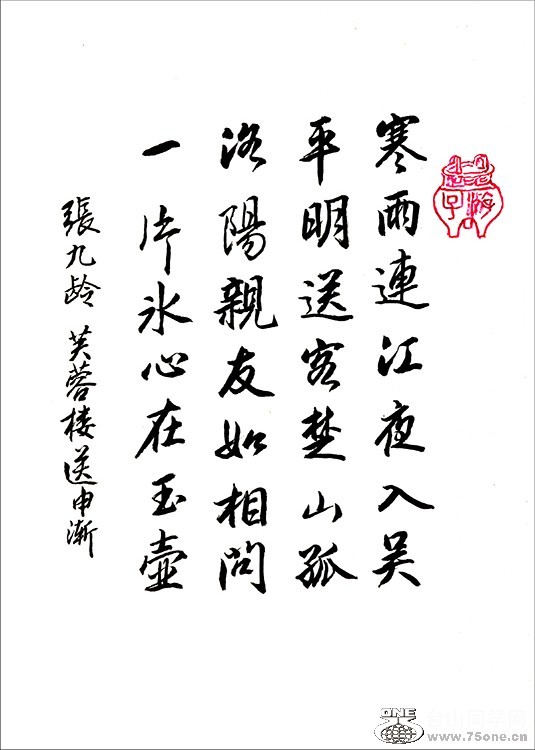 寒雨連江夜入吴
平明送客楚山孤
洛陽親友如相問
一片氷心在玉壺
張九龄 芙蓉楼送申漸
ONE
www.75one.cn